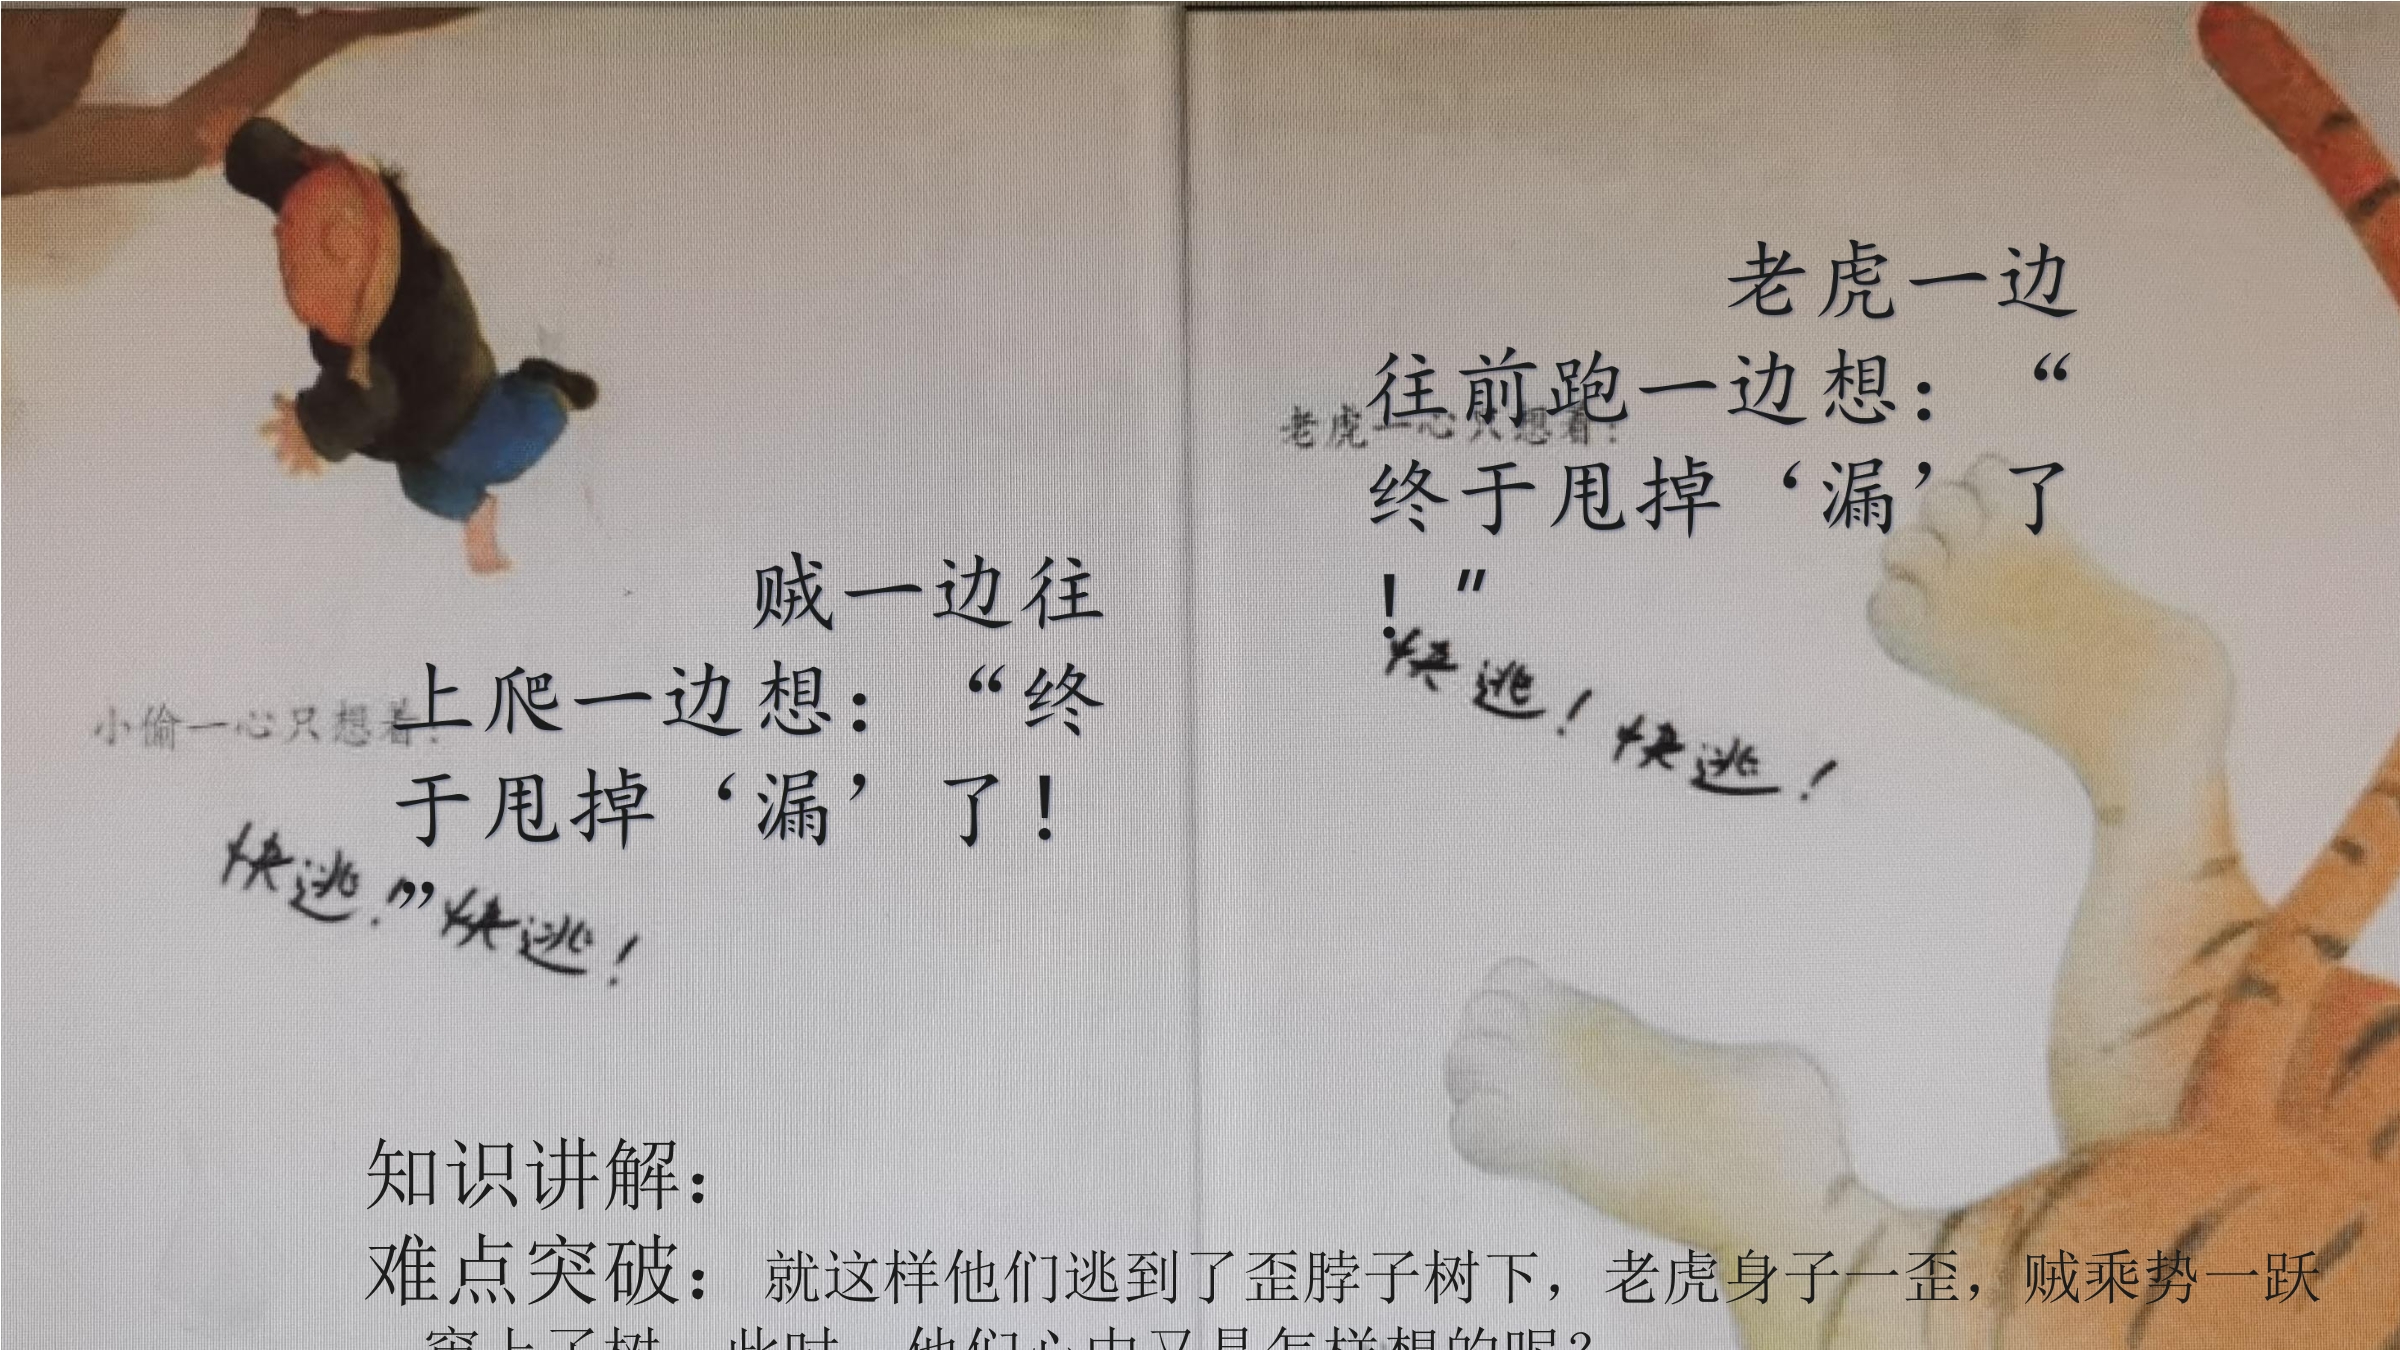 贼一边往
上爬一边想：“终
于甩掉‘漏’了！
”
小偷一心只想着：
快逃！快逃！
老虎一边
往前跑一边想：“
终于甩掉‘漏’了
！”
老虎一心只想着：
快逃！快逃！
知识讲解：
难点突破：就这样他们逃到了歪脖子树下，老虎身子一歪，贼乘势一跃
窜上了树，此时，他们心中又是怎样想的呢？